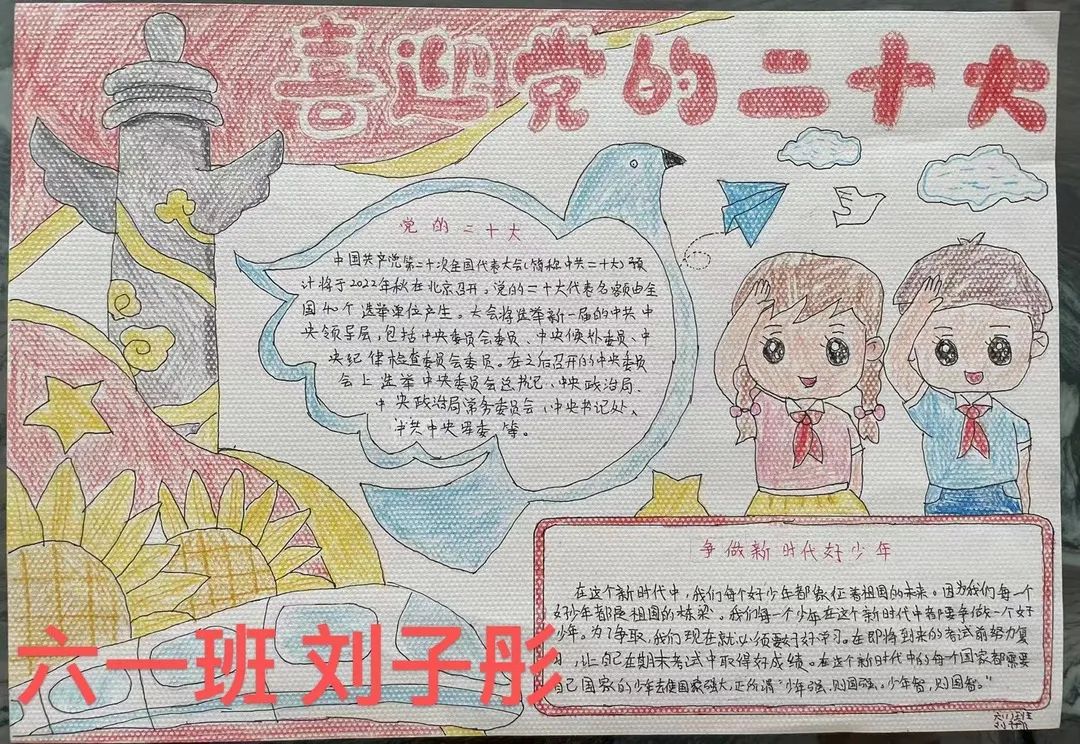 喜迎党的二十大
党的二十大
中国共产党第二十次全国代表大会(简称中共二十大)预
计将于2022年秋在北京召开。党的二十大代表名额由全
国40个选举单位产生。大会将选举新一届的中共中
央领导层,包括中央委员会委员、中央候补委员、中
央纪律检查委员会委员。在之后召开的中央委员
会上选举中央委员会总书记、中央政治局、
中央政治局常务委员会、中央书记处、
中共中央军委等。
争做新时代好少年
在这个新时代中,我们每个好少年都象征着祖国的未来。因为我们每一个
好少年都是祖国的栋梁。我们每一个少年在这个新时代中都要争做一个好
少年。为了争取,我们现在就必须要好好学习。在即将到来的考试前努力复
习,让自己在期末考试中取得好成绩。在这个新时代中的每个国家都需要
自己国家的少年去使国家强大,正所谓"少年强,则国强。少年智,则国智。"
六一班 刘子彤